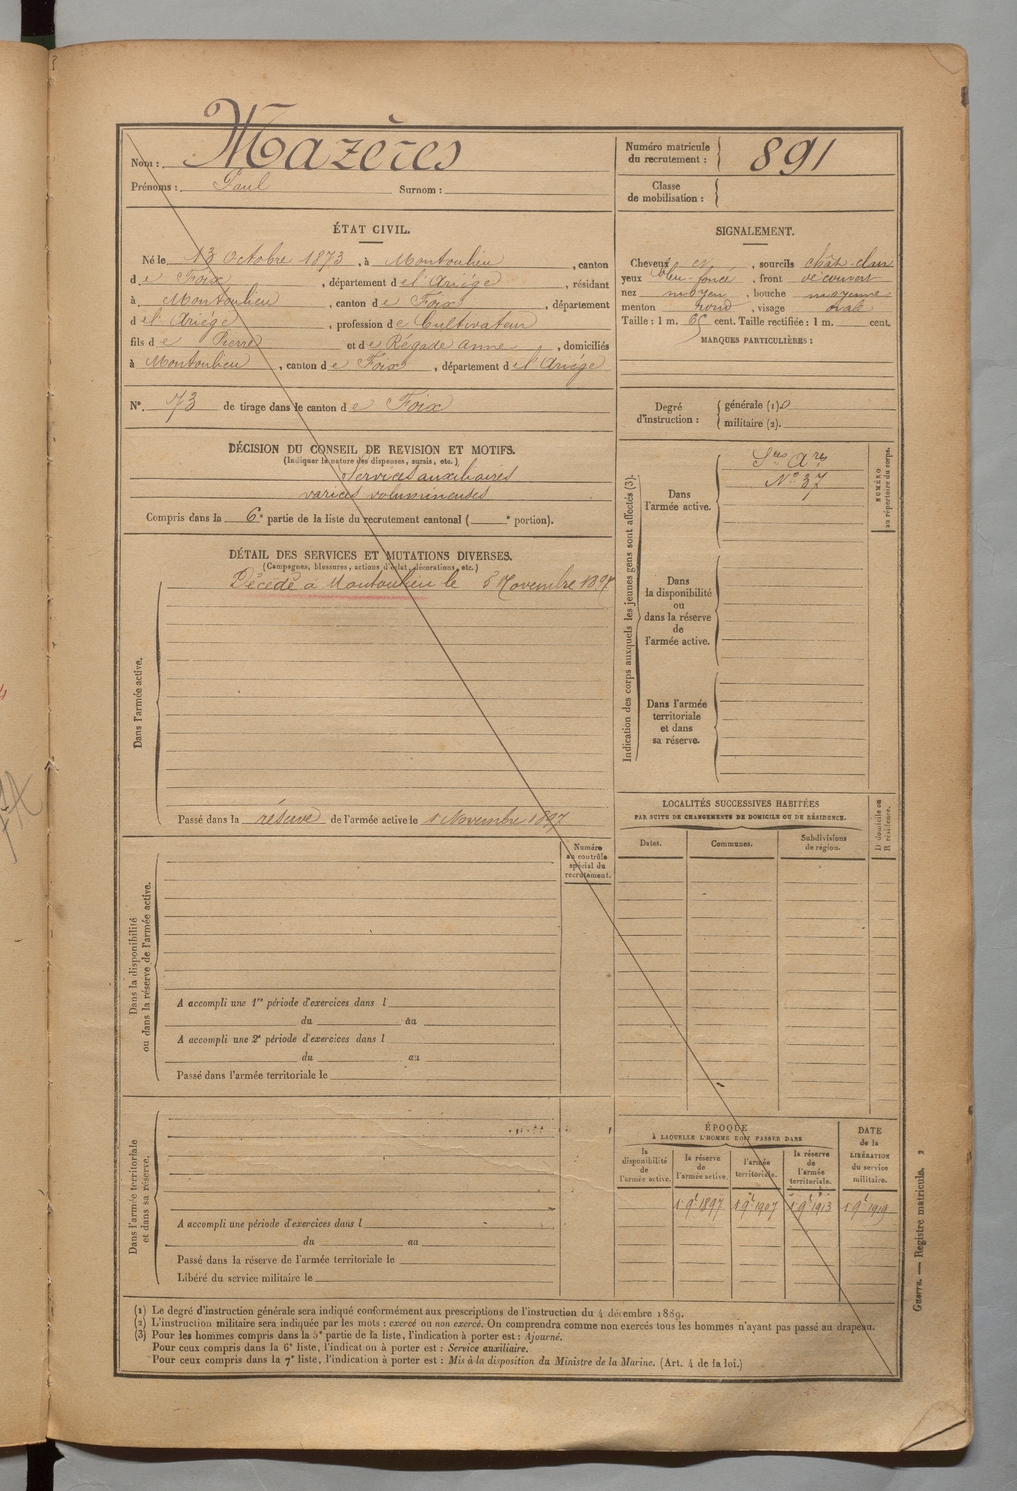 Nom : Mazères
Prénoms : Paul Surnom :
Numéro matricule du recrutement : 891
Classe de mobilisation :
ÉTAT CIVIL.
Né le 13 Octobre 1873, à Montoulieu, canton
de Foix, département de l'Ariége, résidant
à Montoulieu, canton de Foix, département
de l'Ariége, profession de Cultivateur
fils de Pierre et de Régade Anne, domiciliés
à Montoulieu, canton de Foix, département de l'Ariége
N° 73 de tirage dans le canton de Foix
SIGNALEMENT.
Cheveux et, sourcils chât. clair
yeux bleu foncé, front découvert
nez moyen, bouche moyenne
menton rond, visage ovale
Taille : 1 m. 65 cent. Taille rectifiée : 1 m. cent.
MARQUES PARTICULIÈRES :
Degré d'instruction : générale (1) 0
militaire (2).
DÉCISION DU CONSEIL DE REVISION ET MOTIFS.
(Indiquer la nature des dispenses, sursis, etc.)
Services auxiliaires
varices volumineuses
Compris dans la 6e partie de la liste du recrutement cantonal ( e portion).
DÉTAIL DES SERVICES ET MUTATIONS DIVERSES.
(Campagnes, blessures, actions d'éclat, décorations, etc.)
Dans l'armée active.
Décédé à Montoulieu le 5 Novembre 1897
Passé dans la réserve de l'armée active le 1 Novembre 1897
Numéro au contrôle spécial du recrutement.
Dans la disponibilité ou dans la réserve de l'armée active.
A accompli une 1re période d'exercices dans l
du au
A accompli une 2e période d'exercices dans l
du au
Passé dans l'armée territoriale le
Dans l'armée territoriale et dans sa réserve.
A accompli une période d'exercices dans l
du au
Passé dans la réserve de l'armée territoriale le
Libéré du service militaire le
Indication des corps auxquels les jeunes gens sont affectés (3).
Dans l'armée active.
Sces Ares
N° 37
NUMÉRO au répertoire du corps.
Dans la disponibilité ou dans la réserve de l'armée active.
Dans l'armée territoriale et dans sa réserve.
LOCALITÉS SUCCESSIVES HABITÉES
PAR SUITE DE CHANGEMENTS DE DOMICILE OU DE RÉSIDENCE.
Dates. Communes. Subdivisions de région.
D domicile ou R résidence.
ÉPOQUE
À LAQUELLE L'HOMME DOIT PASSER DANS
la disponibilité de l'armée active.
la réserve de l'armée active.
l'armée territoriale.
la réserve de l'armée territoriale.
DATE de la LIBÉRATION du service militaire.
1 9b 1897 1 9b 1907 1 9b 1913 1 9b 1919
(1) Le degré d'instruction générale sera indiqué conformément aux prescriptions de l'instruction du 4 décembre 1889.
(2) L'instruction militaire sera indiquée par les mots : exercé ou non exercé. On comprendra comme non exercés tous les hommes n'ayant pas passé au drapeau.
(3) Pour les hommes compris dans la 5e partie de la liste, l'indication à porter est : Ajourné.
Pour ceux compris dans la 6e liste, l'indication à porter est : Service auxiliaire.
Pour ceux compris dans la 7e liste, l'indication à porter est : Mis à la disposition du Ministre de la Marine. (Art. 4 de la loi.)
Guerre. — Registre matricule. 2